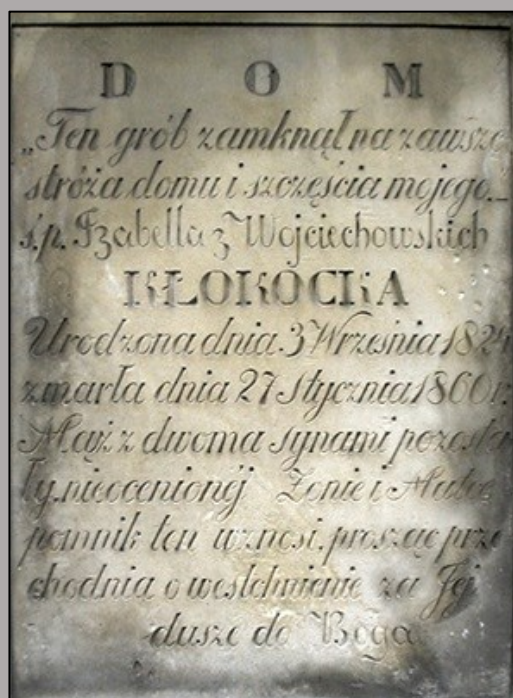 D O M
„Ten grób zamknął na zawsze
stróża domu i szczęścia mojego._
ś.p. Izabella z Wojciechowskich
KŁOKOCKA
Urodzona dnia 3 Września 1824
zmarła dnia 27 Stycznia 1860 r.
Mąż z dwoma synami pozosta
ły, nieocenionéj Żonie i Matce
pomnik ten wznosi, prosząc prze
chodnia o westchnienie za Jej
duszę do Boga